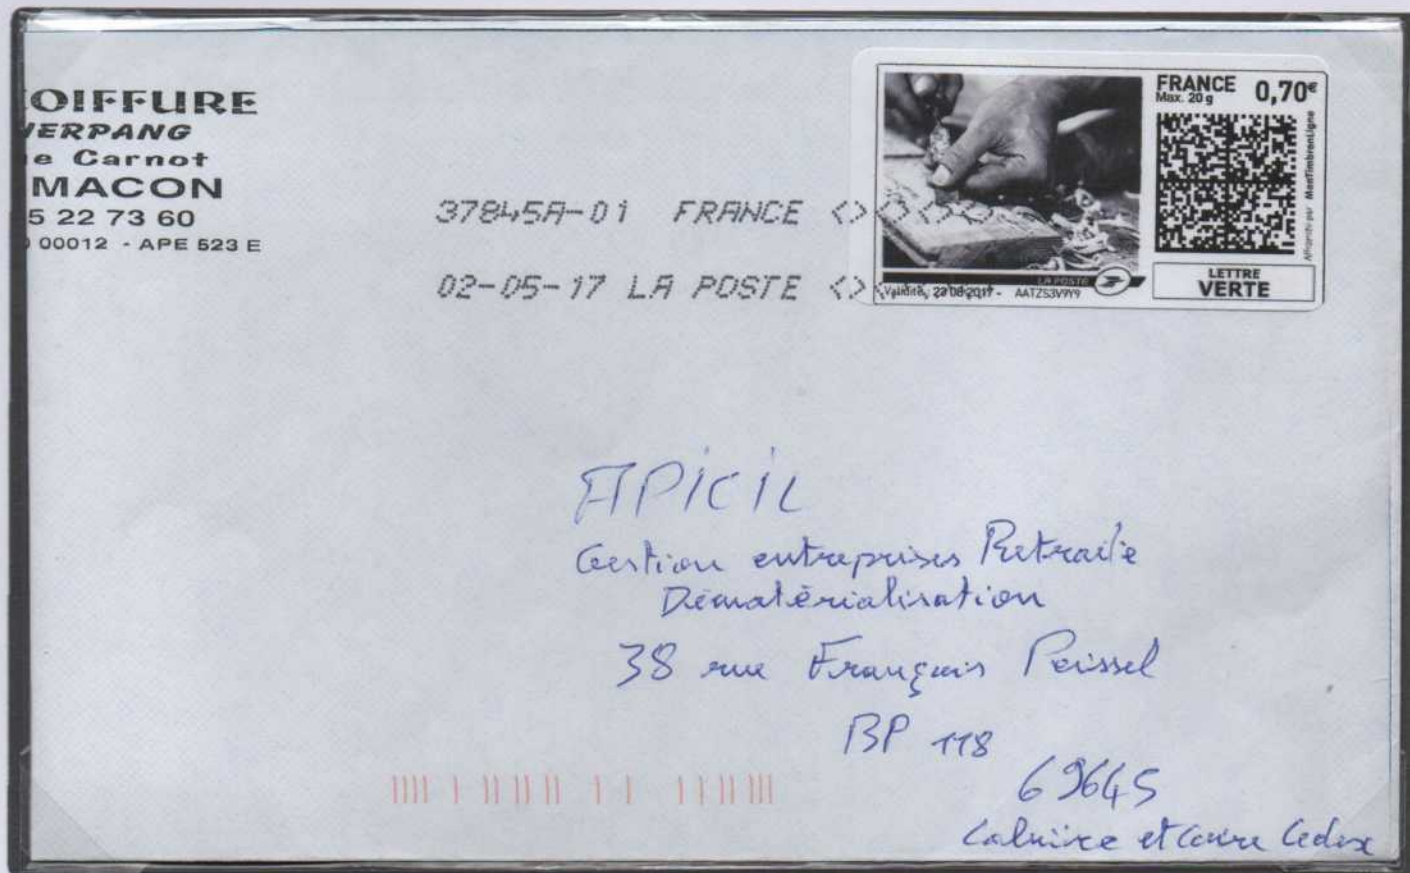 OIFFURE
HERPANG
e Carnot
MACON
5 22 73 60
00012 - APE 523 E
37845A-01 FRANCE
02-05-17 LA POSTE
FRANCE 0,70€
Max. 20 g
Affranchi par MonTimbrenLigne
LA POSTE
LETTRE
VERTE
Validité : AATZS3V9Y9
APICIL
Gestion entreprises Retraite
Dématérialisation
38 rue François Peissel
BP 118
69645
Caluire et Cuire Cedex